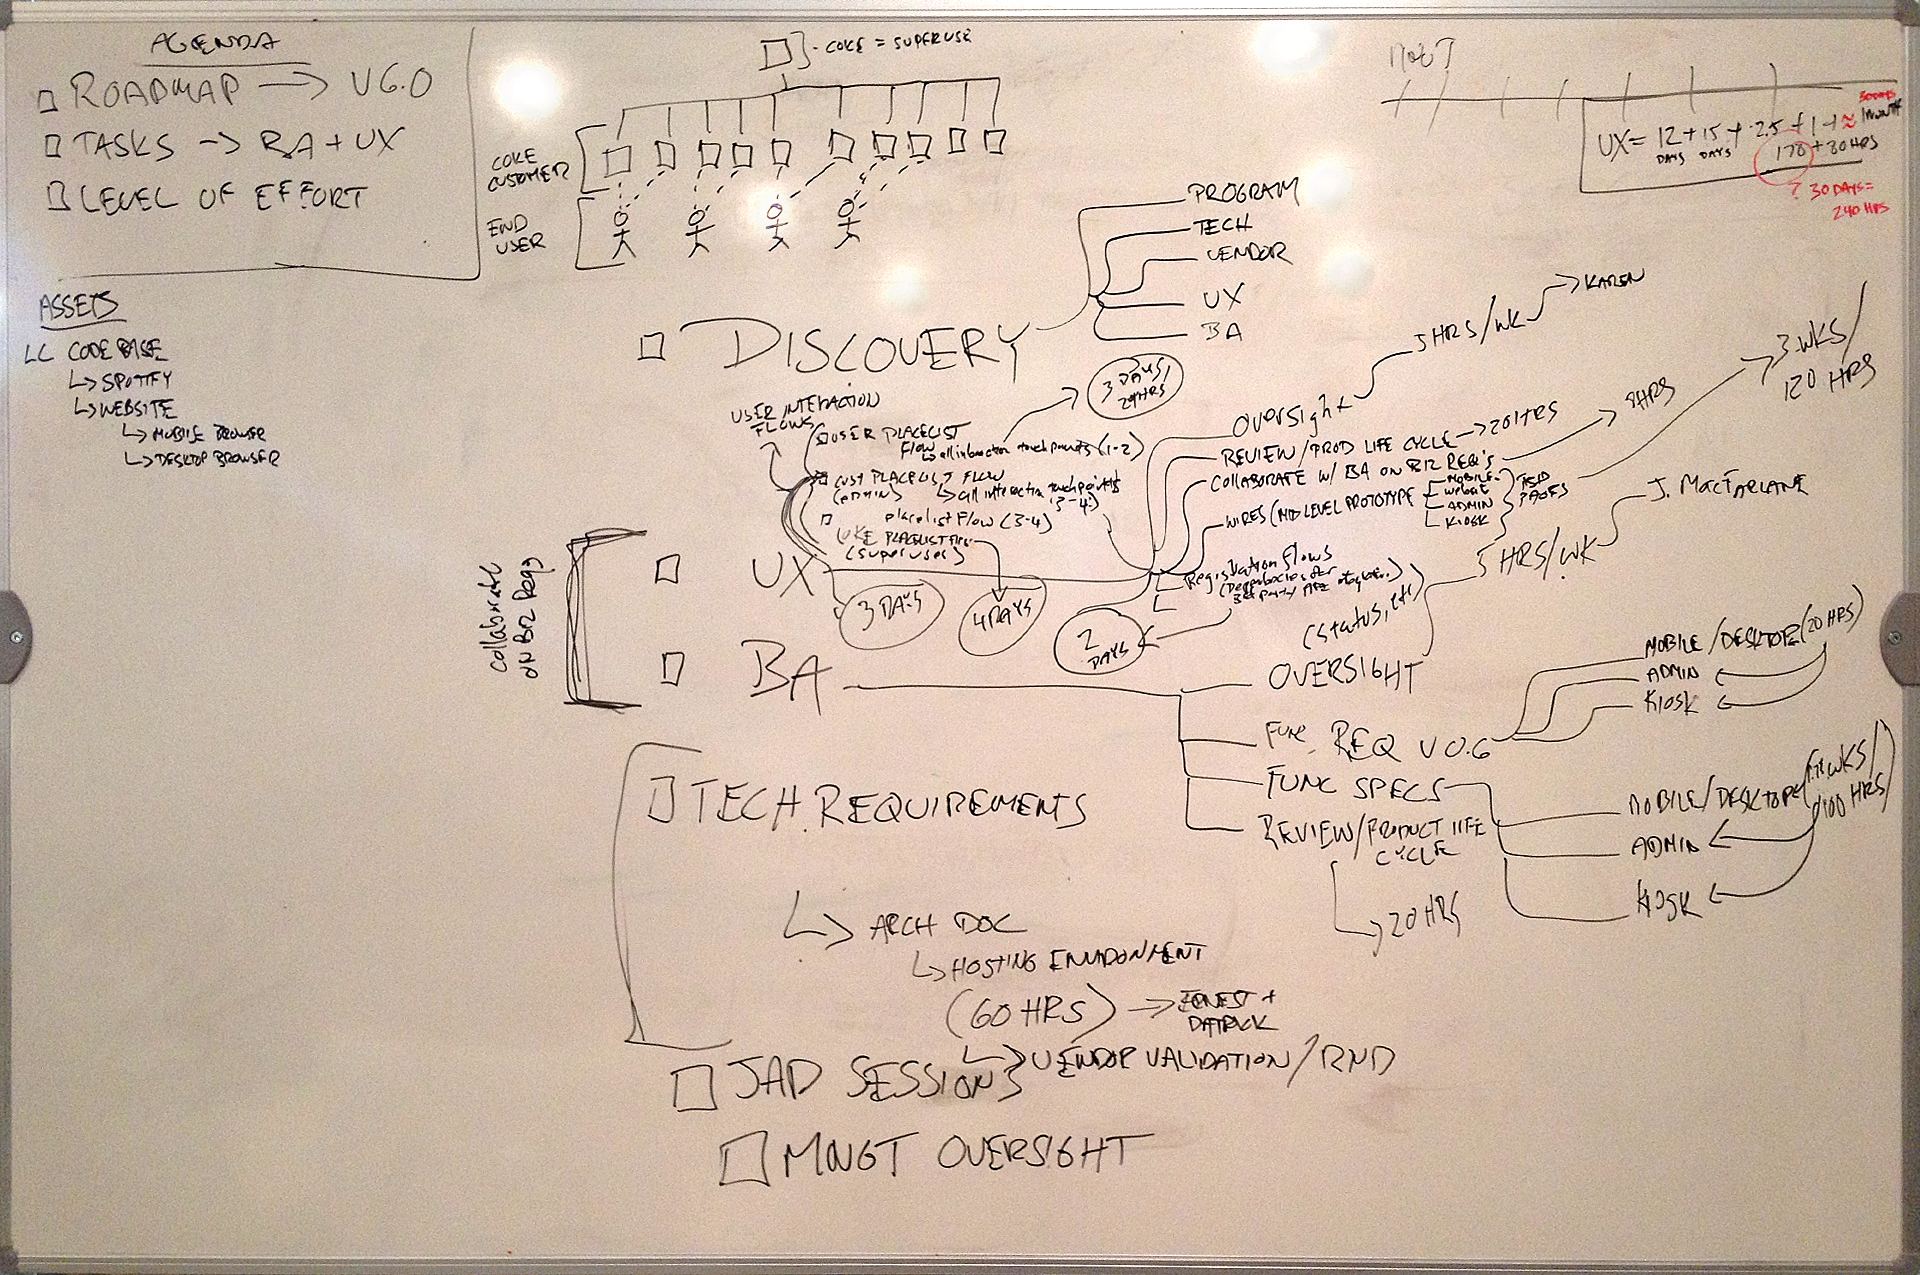 AGENDA
ROADMAP → V6.0
TASKS → BA + UX
LEVEL OF EFFORT
ASSETS
LC CODE BASE
↳ SPOTIFY
↳ WEBSITE
↳ MOBILE BROWSER
↳ DESKTOP BROWSER
COKE = SUPERUSE
COKE
CUSTOMER
END
USER
UX = 12 + 15 + 2.5 + 1 +
DAYS DAYS
30 DAYS
1 MONTH
170 + 30 HRS
? 30 DAYS =
240 HRS
DISCOVERY
PROGRAM
TECH
VENDOR
UX
BA
USER INTERACTION
FLOWS
USER PLACELIST
FLOW
all interaction touchpoints (1-2)
3 DAYS/
24 HRS
CUST PLACELIST FLOW
(ADMIN)
↳ all interaction touchpoints
(3-4)
placelist Flow (3-4)
COKE PLACELIST
(superuser)
Collaborate
on Biz Reqs
UX
3 DAYS
4 DAYS
2
DAYS
OVERSIGHT
5 HRS/WK → KAREN
REVIEW/PROD LIFE CYCLE → 20 HRS
COLLABORATE W/ BA ON BIZ REQ'S
8 HRS
WIRES (MID LEVEL PROTOTYPE
MOBILE
WEBSITE
ADMIN
KIOSK
PAGES
3 WKS/
120 HRS
Registration Flows
(Dependencies for
3rd party API integration)
BA
OVERSIGHT
(status, etc)
5 HRS/WK
J. MACFARLANE
FUNC REQ V 0.6
MOBILE/DESKTOP (20 HRS)
ADMIN
KIOSK
FUNC SPECS
MOBILE/DESKTOP
WKS/
100 HRS)
ADMIN
KIOSK
REVIEW/PRODUCT LIFE
CYCLE
→ 20 HRS
TECH REQUIREMENTS
↳ ARCH DOC
↳ HOSTING ENVIRONMENT
(60 HRS) → ERNEST +
PATRICK
↳ VENDOR VALIDATION/RND
JAD SESSIONS
MNGT OVERSIGHT